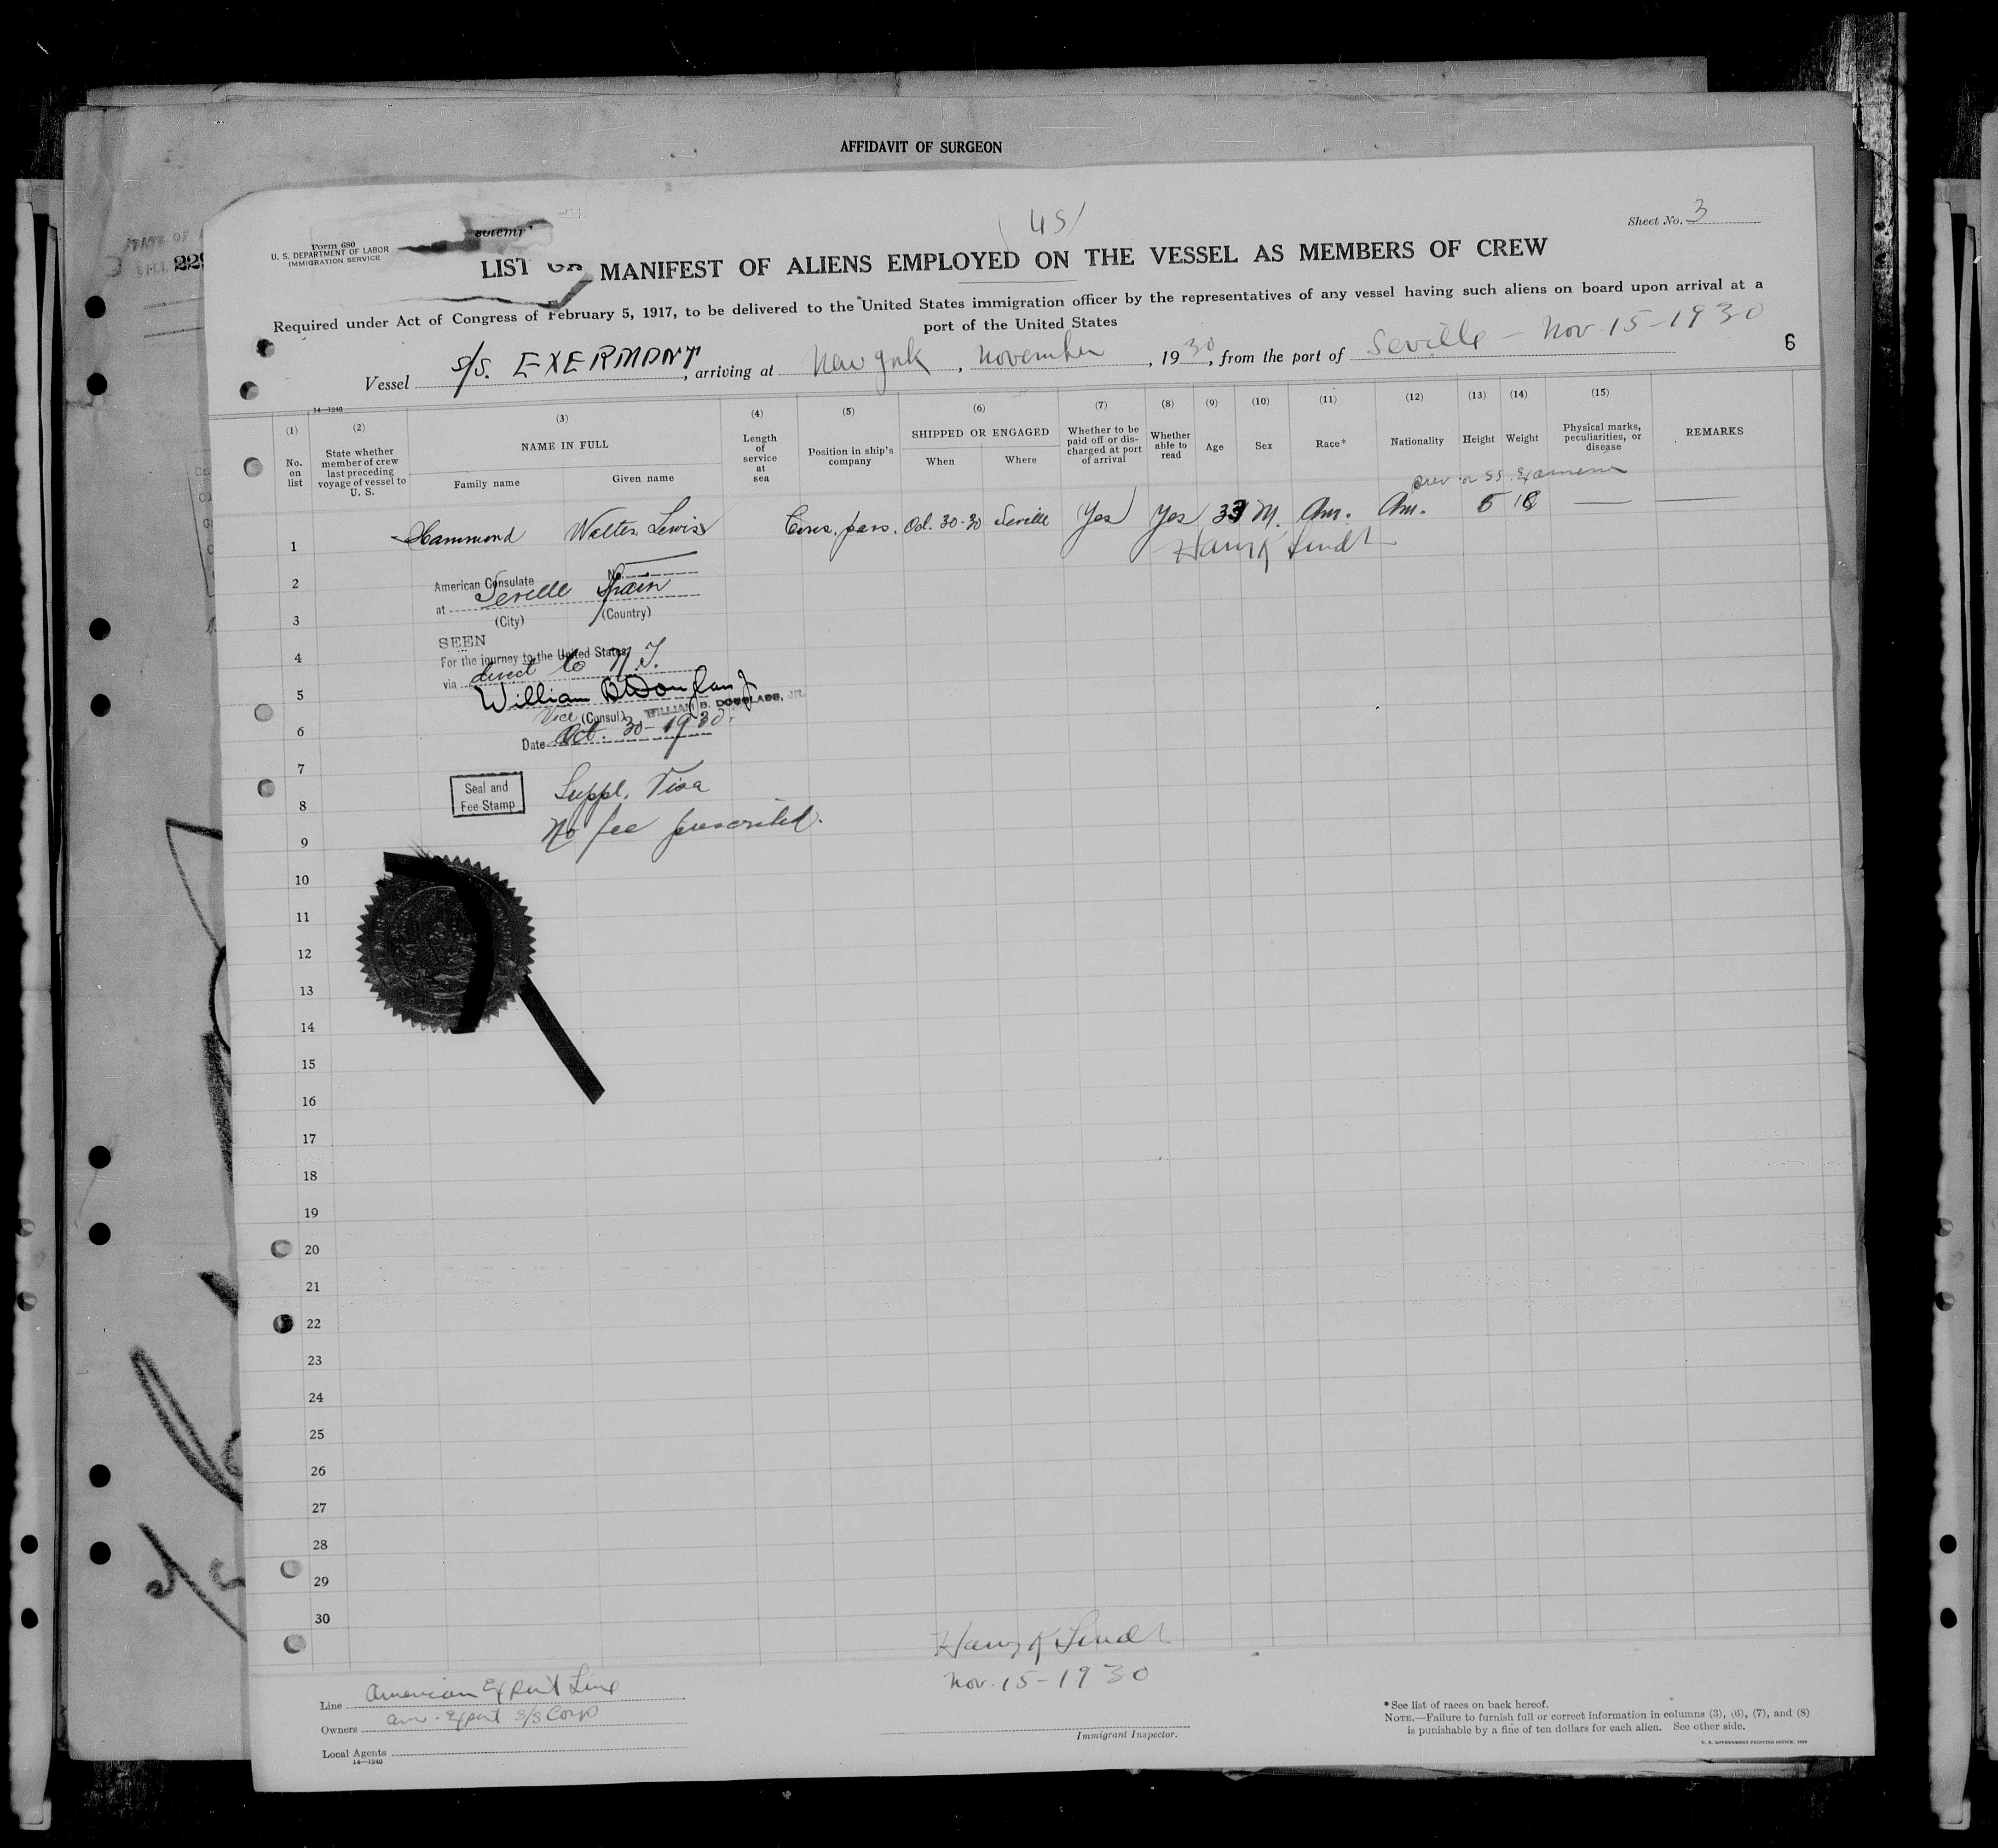 AFFIDAVIT OF SURGEON
Form 680
U. S. DEPARTMENT OF LABOR
IMMIGRATION SERVICE
US
Sheet No. 3
LIST OR MANIFEST OF ALIENS EMPLOYED ON THE VESSEL AS MEMBERS OF CREW
Required under Act of Congress of February 5, 1917, to be delivered to the United States immigration officer by the representatives of any vessel having such aliens on board upon arrival at a
port of the United States
Vessel S/S. EXERMONT, arriving at New York, November, 1930, from the port of Seville - Nov. 15 - 1930
6
14—1240
(1) (2) (3) (4) (5) (6) (7) (8) (9) (10) (11) (12) (13) (14) (15)
No. on list
State whether member of crew last preceding voyage of vessel to U. S.
NAME IN FULL
Family name
Given name
Length of service at sea
Position in ship's company
SHIPPED OR ENGAGED
When
Where
Whether to be paid off or discharged at port of arrival
Whether able to read
Age
Sex
Race*
Nationality
Height
Weight
Physical marks, peculiarities, or disease
REMARKS
1 Hammond Walter Lewis Cons. pass. Oct. 30-30 Seville Yes Yes 33 M. Am. Am. — —
Harry K
2
American Consulate No.
at Seville Spain
3
(City) (Country)
SEEN
4
For the journey to the United States
via direct to N.Y.
5
William B Douglass Jr
Vice (Consul) WILLIAM B. DOUGLASS, JR.
6
Date Oct. 30 - 1930.
7
Seal and
Fee Stamp
Suppl. Visa
8
No fee prescribed.
9
10
11
12
13
14
15
16
17
18
19
20
21
22
23
24
25
26
27
28
29
30
Harry K
Nov. 15 - 1930
Immigrant Inspector.
Line American Export Line
Owners Am. Export S/S Corp
Local Agents
14—1240
*See list of races on back hereof.
NOTE.—Failure to furnish full or correct information in columns (3), (6), (7), and (8)
is punishable by a fine of ten dollars for each alien. See other side.
U. S. GOVERNMENT PRINTING OFFICE